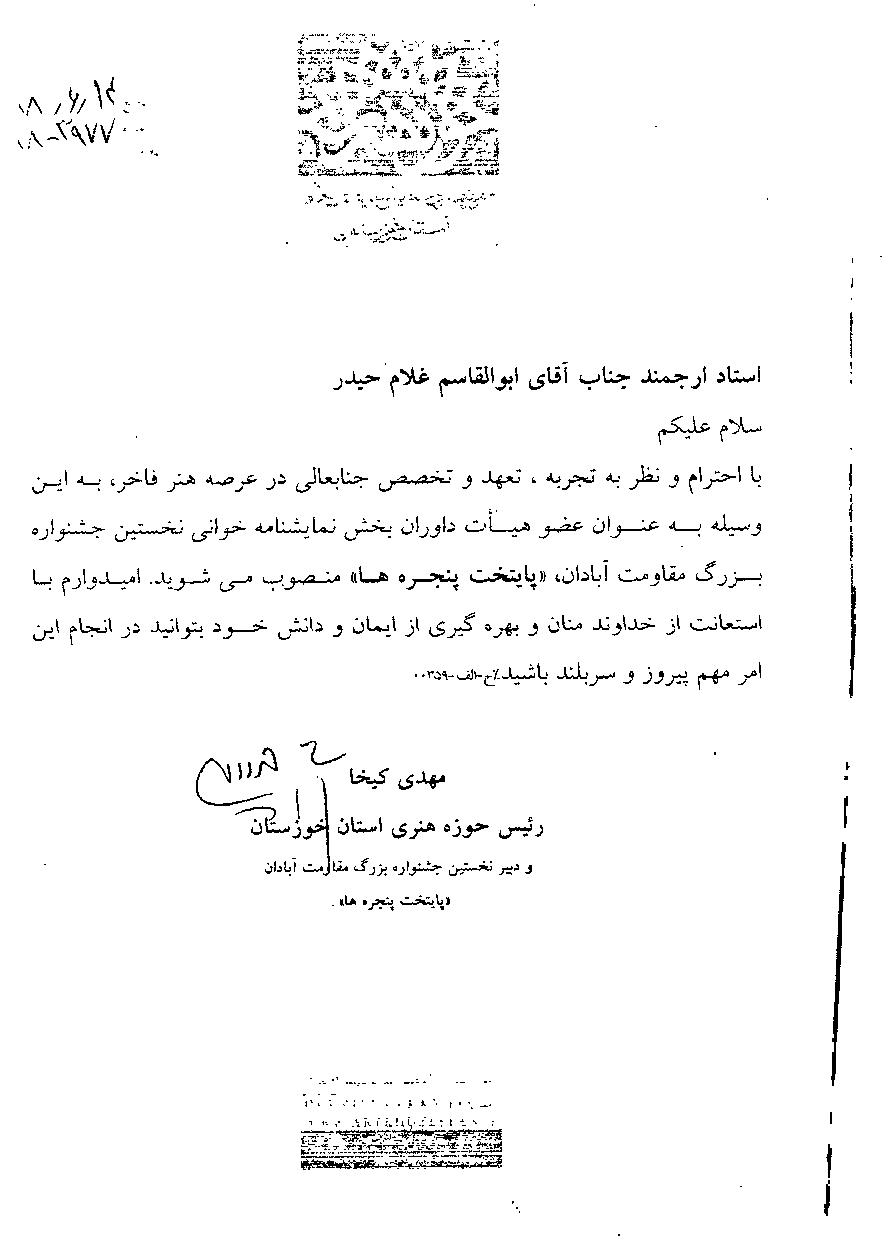 ۸۸-۲۹۷۷
استاد ارجمند جناب آقای ابوالقاسم غلام حیدر
سلام علیکم
با احترام و نظر به تجربه ، تعهد و تخصص جنابعالی در عرصه هنر فاخر، به این
وسیله به عنوان عضو هیأت داوران بخش نمایشنامه خوانی نخستین جشنواره
بزرگ مقاومت آبادان، «پایتخت پنجره ها» منصوب می شوید. امیدوارم با
استعانت از خداوند منان و بهره گیری از ایمان و دانش خود بتوانید در انجام این
امر مهم پیروز و سربلند باشید./ج-الف-۰۰۳۵۹
مهدی کیخا
رئیس حوزه هنری استان خوزستان
و دبیر نخستین جشنواره بزرگ مقاومت آبادان
«پایتخت پنجره ها» .